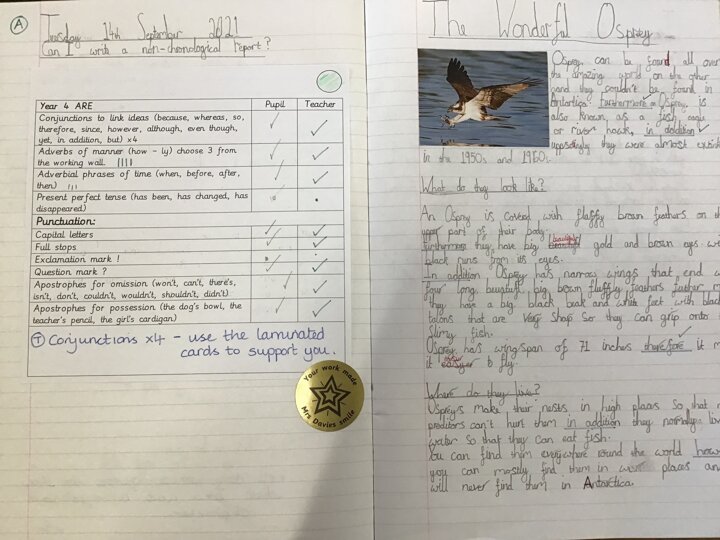 A
Tuesday 14th September 2021
Can I write a non-chronological report?
Year 4 ARE Pupil Teacher
Conjunctions to link ideas (because, whereas, so,
therefore, since, however, although, even though,
yet, in addition, but) x4
Adverbs of manner (how – ly) choose 3 from
the working wall.
Adverbial phrases of time (when, before, after,
then)
Present perfect tense (has been, has changed, has
disappeared)
Punctuation:
Capital letters
Full stops
Exclamation mark !
Question mark ?
Apostrophes for omission (won't, can't, there's,
isn't, don't, couldn't, wouldn't, shouldn't, didn't)
Apostrophes for possession (the dog's bowl, the
teacher's pencil, the girl's cardigan)
T Conjunctions x4 - use the laminated
cards to support you.
Your work made
Mrs Davies smile
The Wonderful Osprey
Osprey can be found all over
the amazing world on the other
hand they couldn't be found in
Furthermore Osprey is
also known as a fish eagle
or river hawk, in addition
they were almost
in the 1950s and 1960s.
What do they look like?
An Osprey is covered with fluffy brown feathers on the
upper part of their body.
Furthermore they have big beautiful gold and brown eyes
black runs from its eyes.
In addition Osprey has narrow wings that end
four long big brown fluffy feathers
they have a big black beak and white feet with black
talons that are very sharp so they can grip onto
slimy fish.
Osprey has wingspan of 71 inches therefore it
it easier to fly.
Where do they live?
Ospreys make their nests in high places so that
preditors can't hurt them in addition they normally
water so that they can eat fish.
You can find them everywhere round the world
you can mostly find them in places
will never find them in Antarctica.